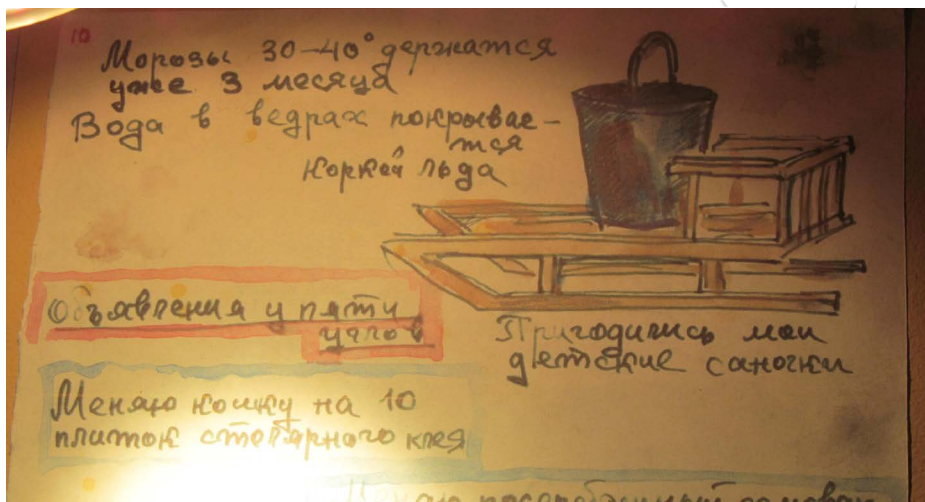 10
Морозы 30-40° держатся
уже 3 месяца
Вода в ведрах покрывае-
тся
коркой льда
Объявления у пяти
углов
Пригодились мои
детские саночки
Меняю кошку на 10
плиток столярного клея
Меняю посеребренный